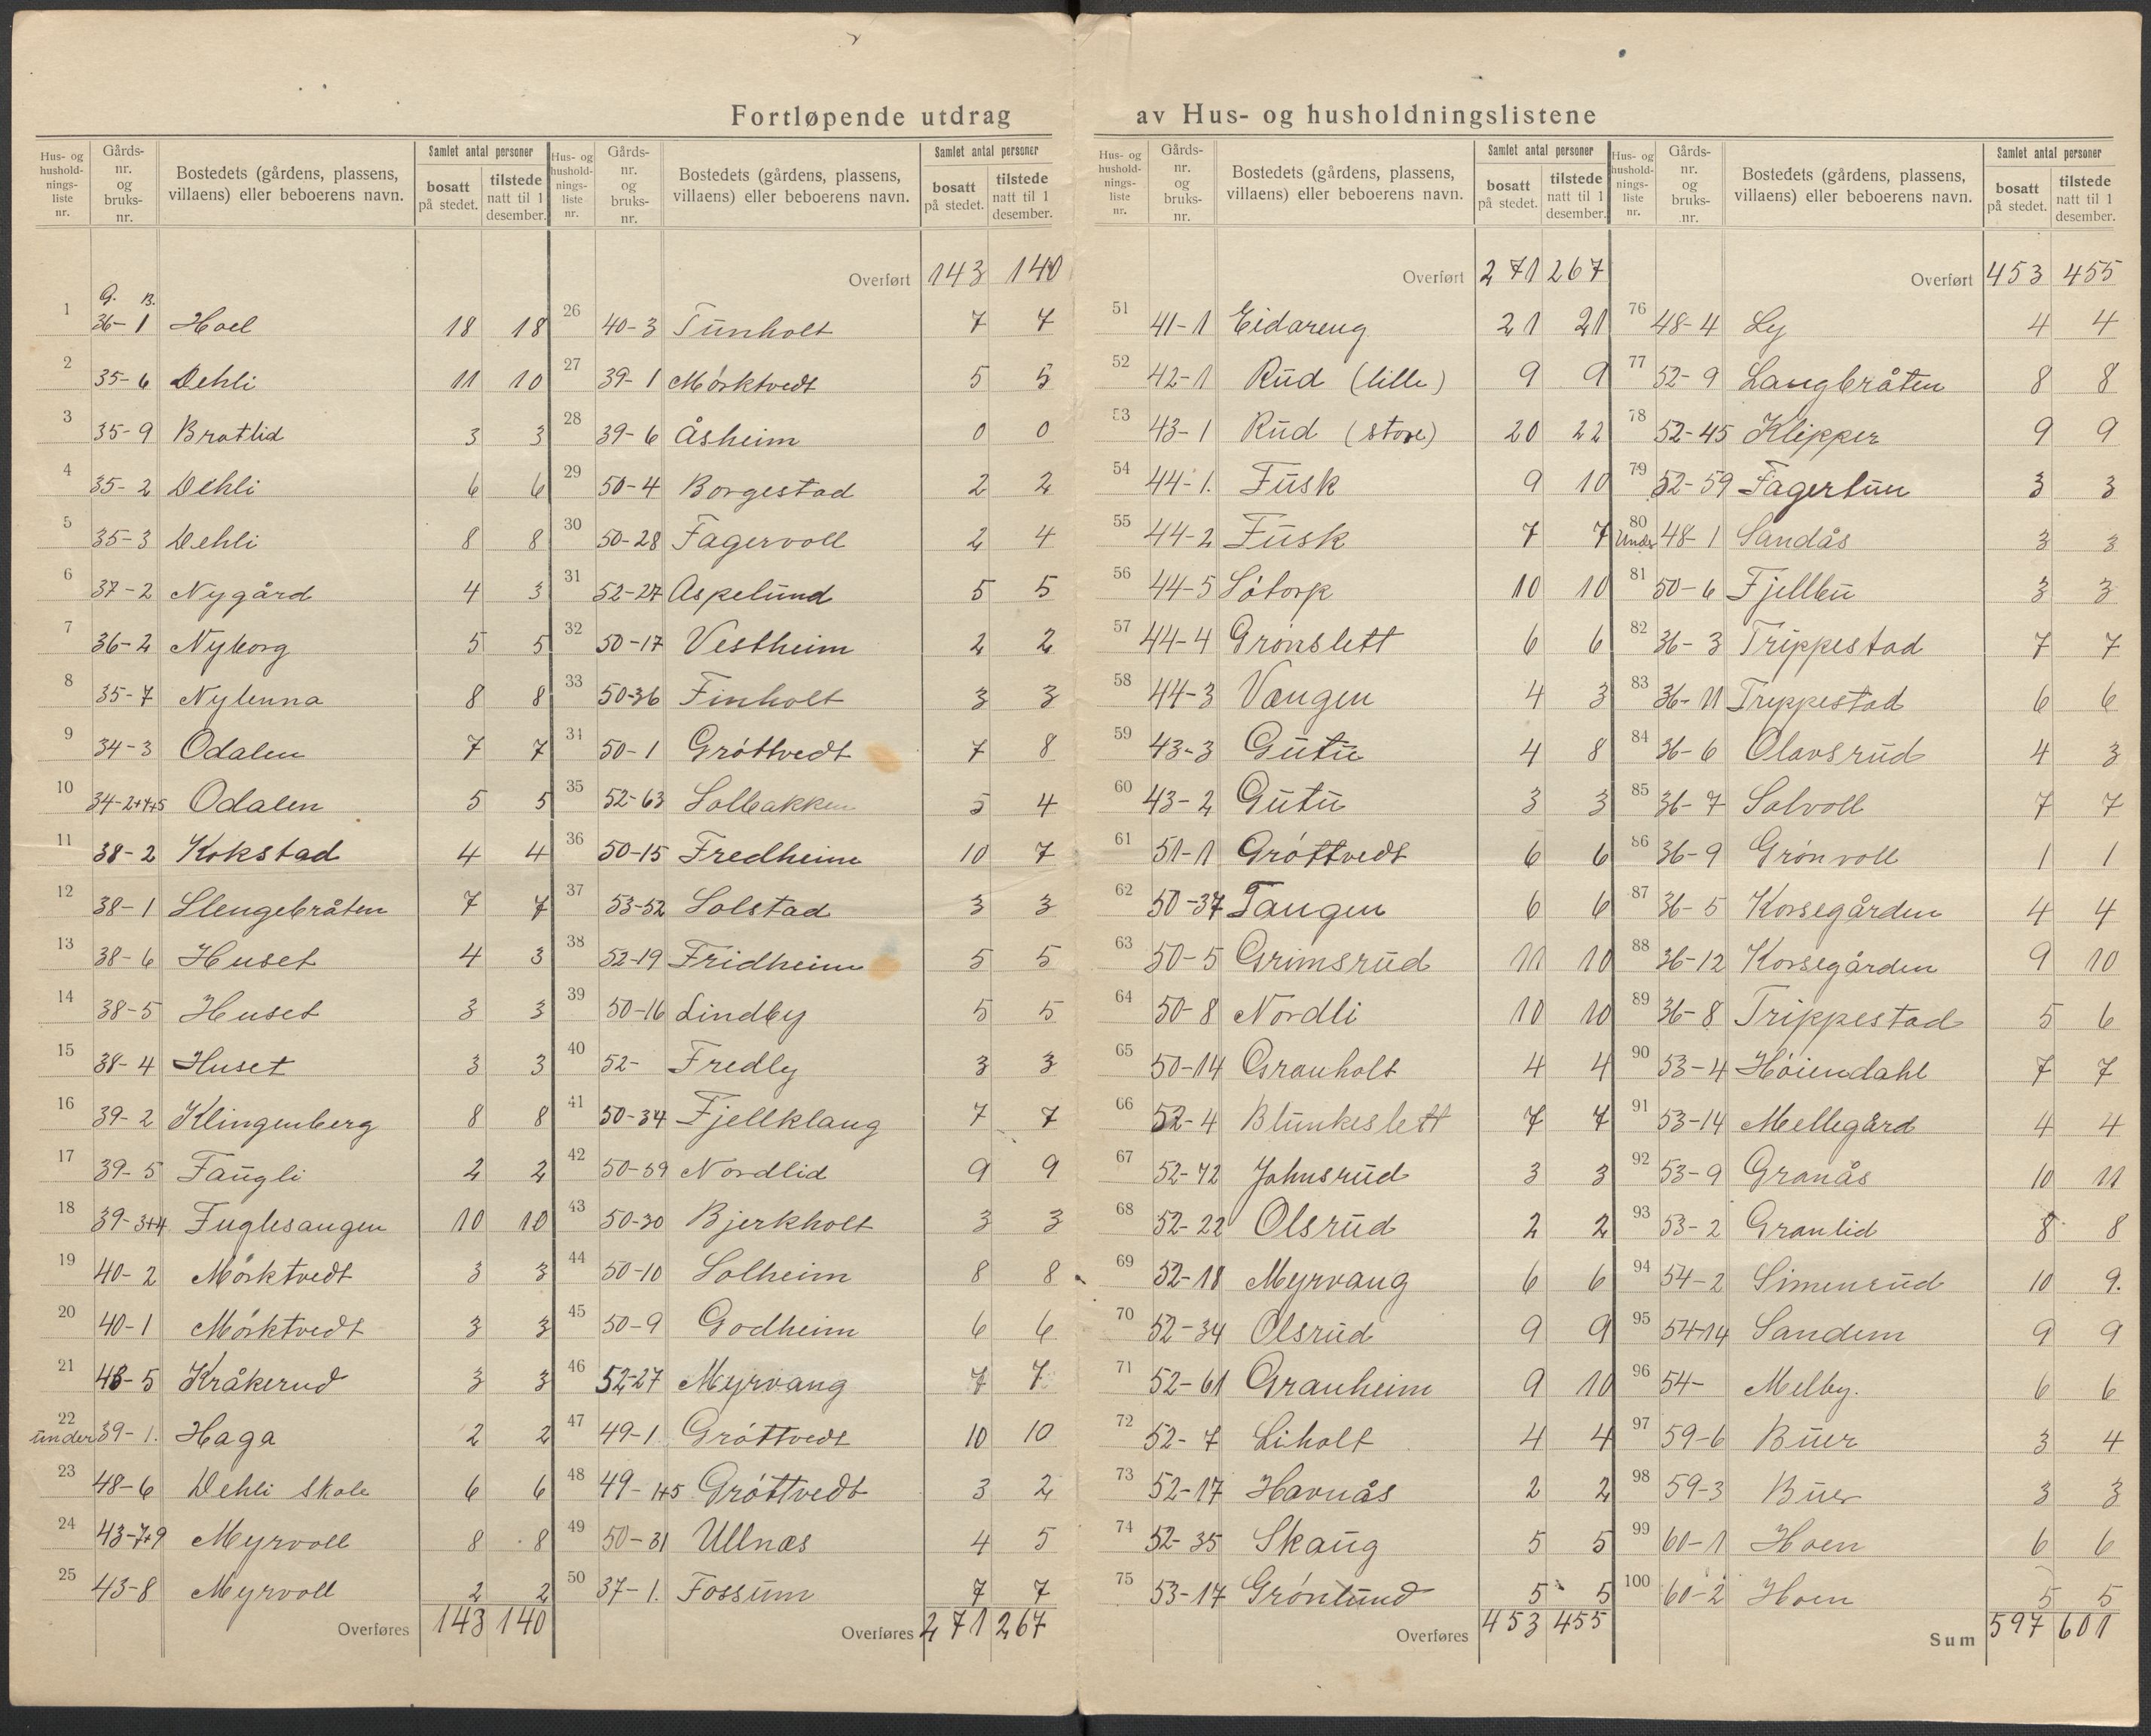 Fortløpende utdrag av Hus- og husholdningslistene
Hus- og husholdnings-liste nr. | Gårds-nr. og bruks-nr. | Bostedets (gårdens, plassens, villaens) eller beboerens navn. | Samlet antal personer | bosatt på stedet. | tilstede natt til 1 desember.
G. B.
1 36-1 Hoel 18 18
2 35-6 Dehli 11 10
3 35-9 Bratlid 3 3
4 35-2 Dehli 6 6
5 35-3 Dehli 8 8
6 37-2 Nygård 4 3
7 36-2 Nyborg 5 5
8 35-7 Nylenna 8 8
9 34-3 Odalen 7 7
10 34-2+4+5 Odalen 5 5
11 38-2 Kokstad 4 4
12 38-1 Slengebråten 7 7
13 38-6 Huset 4 3
14 38-5 Huset 3 3
15 38-4 Huset 3 3
16 39-2 Klingenberg 8 8
17 39-5 Faugli 2 2
18 39-3+4 Fuglesangen 10 10
19 40-2 Mørktvedt 3 3
20 40-1 Mørktvedt 3 3
21 48-5 Kråkerud 3 3
22 under 39-1. Haga 2 2
23 48-6 Dehli skole 6 6
24 43-7+9 Myrvoll 8 8
25 43-8 Myrvoll 2 2
Overføres 143 140
Hus- og husholdnings-liste nr. | Gårds-nr. og bruks-nr. | Bostedets (gårdens, plassens, villaens) eller beboerens navn. | Samlet antal personer | bosatt på stedet. | tilstede natt til 1 desember.
Overført 143 140
26 40-3 Tunholt 7 7
27 39-1 Mørktvedt 5 5
28 39-6 Åsheim 0 0
29 50-4 Borgestad 2 2
30 50-28 Fagervoll 2 4
31 52-27 Aspelund 5 5
32 50-17 Vestheim 2 2
33 50-36 Finholt 3 3
34 50-1 Grøttvedt 7 8
35 52-63 Solbakken 5 4
36 50-15 Fredheim 10 7
37 53-52 Solstad 3 3
38 52-19 Fridheim 5 5
39 50-16 Lindby 5 5
40 52- Fredly 3 3
41 50-34 Fjellklang 7 7
42 50-59 Nordlid 9 9
43 50-30 Bjerkholt 3 3
44 50-10 Solheim 8 8
45 50-9 Godheim 6 6
46 52-27 Myrvang 7 7
47 49-1 Grøttvedt 10 10
48 49-1+5 Grøttvedt 3 2
49 50-31 Ullnæs 4 5
50 37-1. Fossum 7 7
Overføres 271 267
Hus- og husholdnings-liste nr. | Gårds-nr. og bruks-nr. | Bostedets (gårdens, plassens, villaens) eller beboerens navn. | Samlet antal personer | bosatt på stedet. | tilstede natt til 1 desember.
Overført 271 267
51 41-1 Eidareng 21 21
52 42-1 Rud (lille) 9 9
53 43-1 Rud (store) 20 22
54 44-1. Fusk 9 10
55 44-2 Fusk 7 7
56 44-5 Søtorp 10 10
57 44-4 Grønslett 6 6
58 44-3 Vangen 4 3
59 43-3 Gutu 4 8
60 43-2 Gutu 3 3
61 51-1 Grøttvedt 6 6
62 50-37 Tangen 6 6
63 50-5 Grimsrud 11 10
64 50-8 Nordli 10 10
65 50-14 Granholt 4 4
66 52-4 Blunkeslett 7 7
67 52-72 Johnsrud 3 3
68 52-22 Olsrud 2 2
69 52-18 Myrvang 6 6
70 52-34 Olsrud 9 9
71 52-61 Granheim 9 10
72 52-7 Liholt 4 4
73 52-17 Havnås 2 2
74 52-35 Skaug 5 5
75 53-17 Grøntund 5 5
Overføres 453 455
Hus- og husholdnings-liste nr. | Gårds-nr. og bruks-nr. | Bostedets (gårdens, plassens, villaens) eller beboerens navn. | Samlet antal personer | bosatt på stedet. | tilstede natt til 1 desember.
Overført 453 455
76 48-4 Ly 4 4
77 52-9 Langbråten 8 8
78 52-45 Klipper 9 9
79 52-59 Fagertun 3 3
80 Under 48-1 Sandås 3 3
81 50-6 Fjellbu 3 3
82 36-3 Trippestad 7 7
83 36-11 Trippestad 6 6
84 36-6 Olavsrud 4 3
85 36-7 Solvoll 7 7
86 36-9 Grønvoll 1 1
87 36-5 Korsegården 4 4
88 36-12 Korsegården 9 10
89 36-8 Trippestad 5 6
90 53-4 Høiendahl 7 7
91 53-14 Mellegård 4 4
92 53-9 Granås 10 11
93 53-2 Granlid 8 8
94 54-2 Simensrud 10 9.
95 54-14 Sandem 9 9
96 54- Melby. 6 6
97 59-6 Buer 3 4
98 59-3 Buer 3 3
99 60-1 Hoen 6 6
100 60-2 Hoen 5 5
Sum 597 601